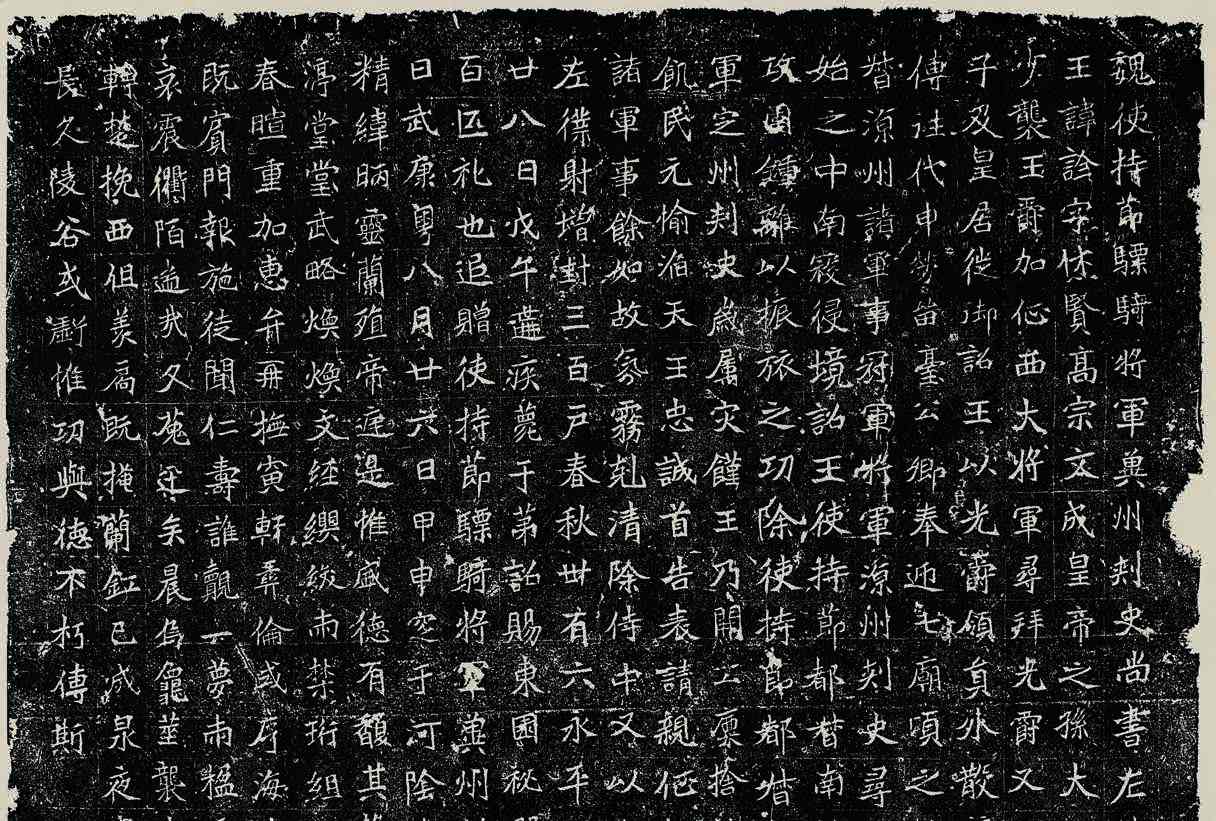 魏使持節驃騎將軍冀州刺史尚書左
王諱詮字休賢高宗文成皇帝之孫大
少襲王爵加征西大將軍尋拜光爵又
子及皇居徙御詔王以光爵領員外散
傳註代申留臺公卿奉迎七廟頃之
督涼州諸軍事冠軍將軍涼州刺史尋
始之中南寇侵境詔王使持節都督南
攻圍鍾離以振旅之功除使持節都督
軍定州刺史為屬灾饉王乃開廩捨
飢民元愉滔天王忠誠首告表請親征
諸軍事餘如故氛霧剋清除侍中又以
左僕射增封三百戶春秋卅有六永平
廿八日戊午遘疾薨于第詔賜東園祕
百匹礼也追贈使持節驃騎將軍冀州
曰武康粵八月廿六日甲申窆于河陰
精緯昞靈蘭殖帝庭寔惟盛德有馥其
渟堂堂武略煥煥文經纓紱兩禁珩組
春暄重加惠弁再撫寅軒彝倫或序海
既賓門報施徒聞仁壽誰覯一夢兩楹
哀震衢陌遙哉夕菟迂矣晨烏龜筮襲
轉楚挽西徂美鬲既掩蘭釭已滅泉夜
長久陵谷或虧惟功與德不朽傳斯